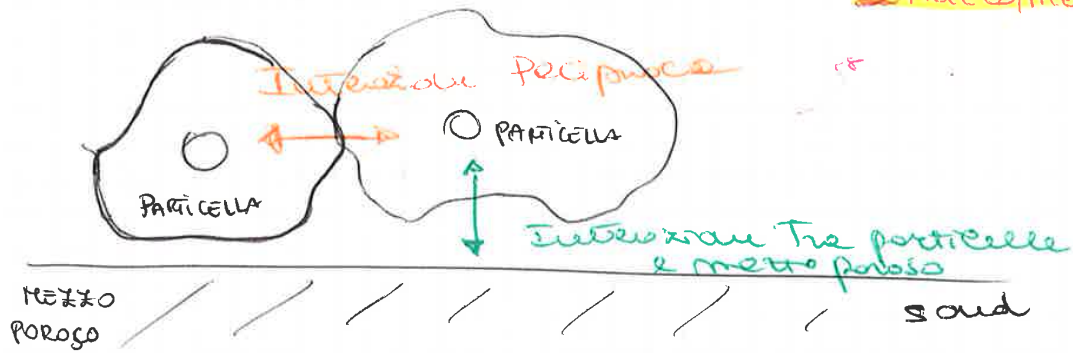 Interazione Reciproca
PARTICELLA
PARTICELLA
Interazione Tra particelle
e mezzo poroso
MEZZO
POROSO
sand